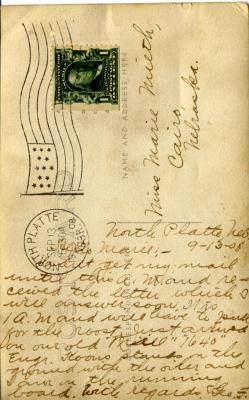 NAME AND ADDRESS HERE
Miss Marie Mieth,
Cairo,
Nebraska.
NORTH PLATTE
SEP 13
1908
North Platte, Neb
Marie,- 9-13-08
get my mail
until this A.M. and re-
ceived the letter which I
will answer soon. It is
1 A.M. and will have to
for the roost. Just arrived
on our old "Mill" "1640"
Engr. stands on the
ground with the oiler and
I am in the running
board. With regards